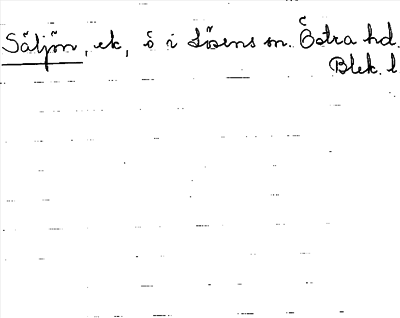 Säljön, ek, ö i Lösens sn. Östra hd.
Blek. l